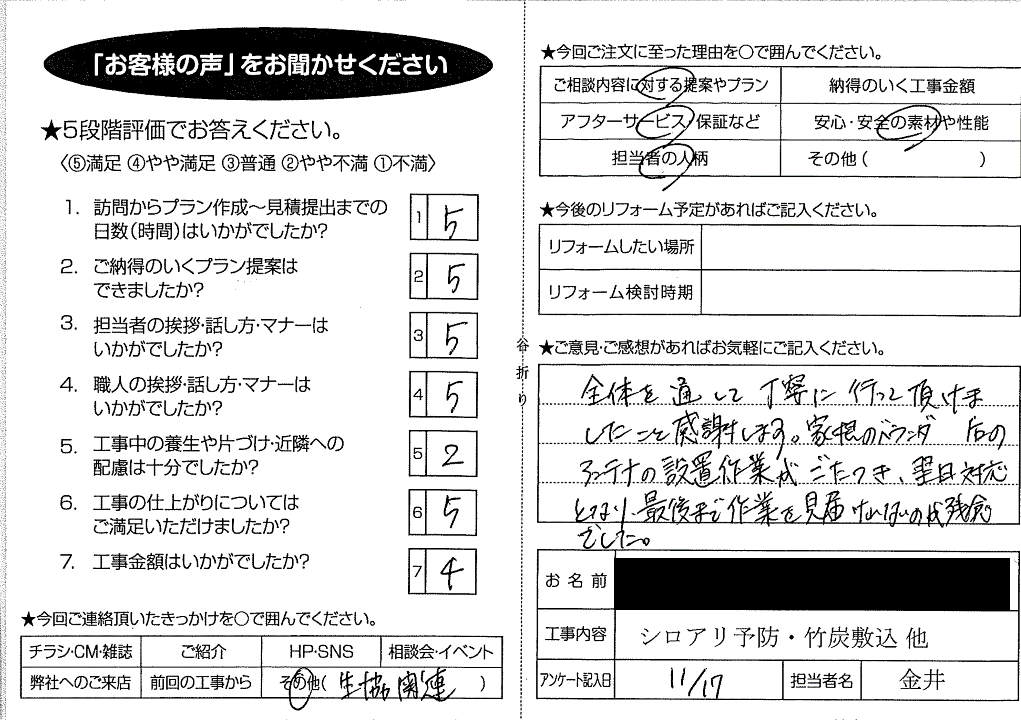 「お客様の声」をお聞かせください
★5段階評価でお答えください。
〈⑤満足 ④やや満足 ③普通 ②やや不満 ①不満〉
1. 訪問からプラン作成～見積提出までの
日数(時間)はいかがでしたか?
1 5
2. ご納得のいくプラン提案は
できましたか?
2 5
3. 担当者の挨拶・話し方・マナーは
いかがでしたか?
3 5
4. 職人の挨拶・話し方・マナーは
いかがでしたか?
4 5
5. 工事中の養生や片づけ・近隣への
配慮は十分でしたか?
5 2
6. 工事の仕上がりについては
ご満足いただけましたか?
6 5
7. 工事金額はいかがでしたか?
7 4
★今回ご連絡頂いたきっかけを○で囲んでください。
チラシ・CM・雑誌 ご紹介 HP・SNS 相談会・イベント
弊社へのご来店 前回の工事から その他( 生協関連 )
谷折り
★今回ご注文に至った理由を○で囲んでください。
ご相談内容に対する提案やプラン 納得のいく工事金額
アフターサービス/保証など 安心・安全の素材や性能
担当者の人柄 その他( )
★今後のリフォーム予定があればご記入ください。
リフォームしたい場所
リフォーム検討時期
★ご意見・ご感想があればお気軽にご記入ください。
全体を通して丁寧に行って頂けま
したこと感謝します。家根のベランダ
アンテナの設置作業がごたつき、翌日対応
となり、最後まで作業を見届けないのは残念
でした。
お名前
工事内容 シロアリ予防・竹炭敷込 他
アンケート記入日 11/17 担当者名 金井